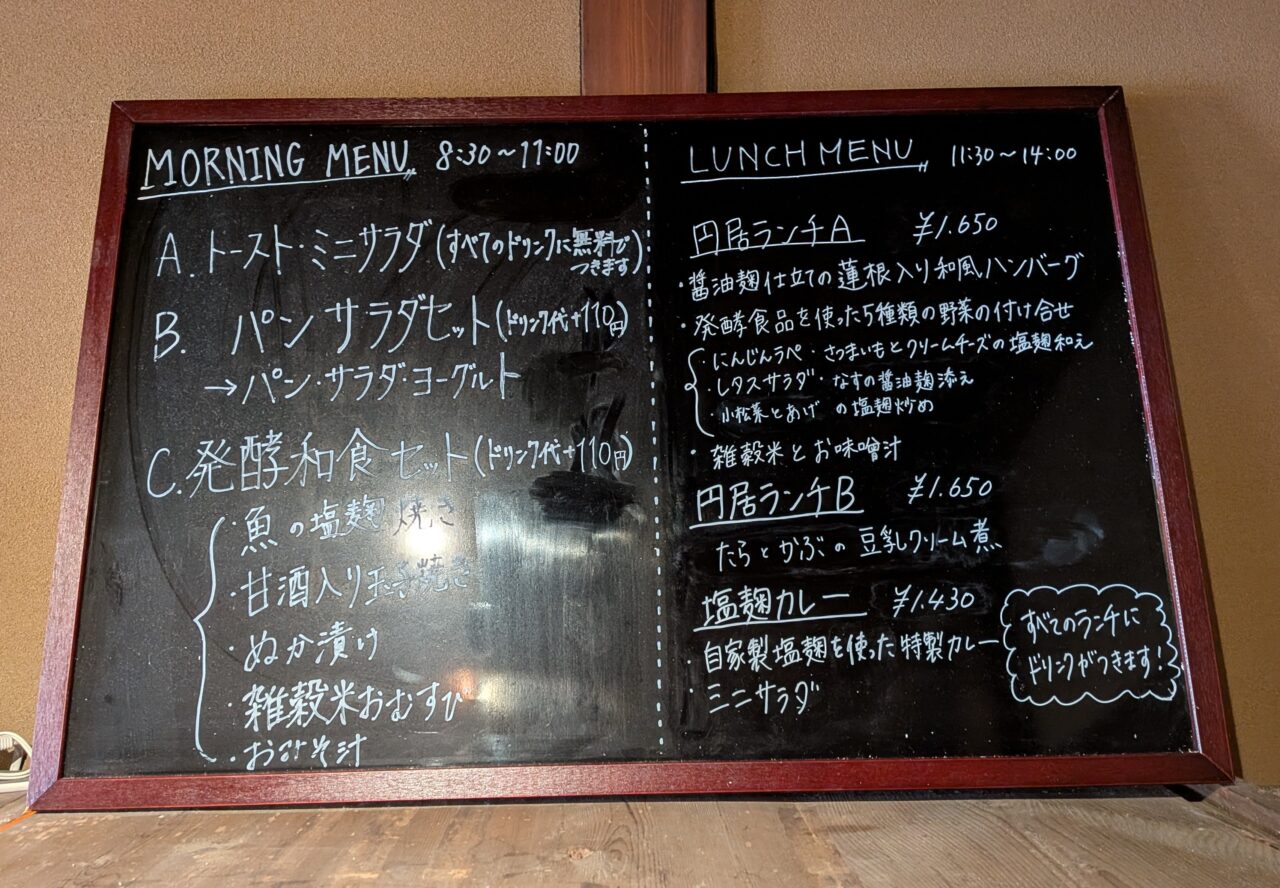 MORNING MENU 8:30～11:00
A. トースト・ミニサラダ(すべてのドリンクに無料でつきます)
B. パンサラダセット(ドリンク代+110円)
→パン・サラダ・ヨーグルト
C. 発酵和食セット(ドリンク代+110円)
・魚の塩麹焼き
・甘酒入り玉子焼き
・ぬか漬け
・雑穀米おむすび
・おみそ汁
LUNCH MENU 11:30～14:00
円居ランチA ¥1.650
・醤油麹仕立ての蓮根入り和風ハンバーグ
・発酵食品を使った5種類の野菜の付け合せ
・にんじんラペ・さつまいもとクリームチーズの塩麹和え
・レタスサラダ・なすの醤油麹添え
・小松菜とあげの塩麹炒め
・雑穀米とお味噌汁
円居ランチB ¥1.650
たらとかぶの豆乳クリーム煮
塩麹カレー ¥1.430
・自家製塩麹を使った特製カレー
・ミニサラダ
すべてのランチに
ドリンクがつきます!